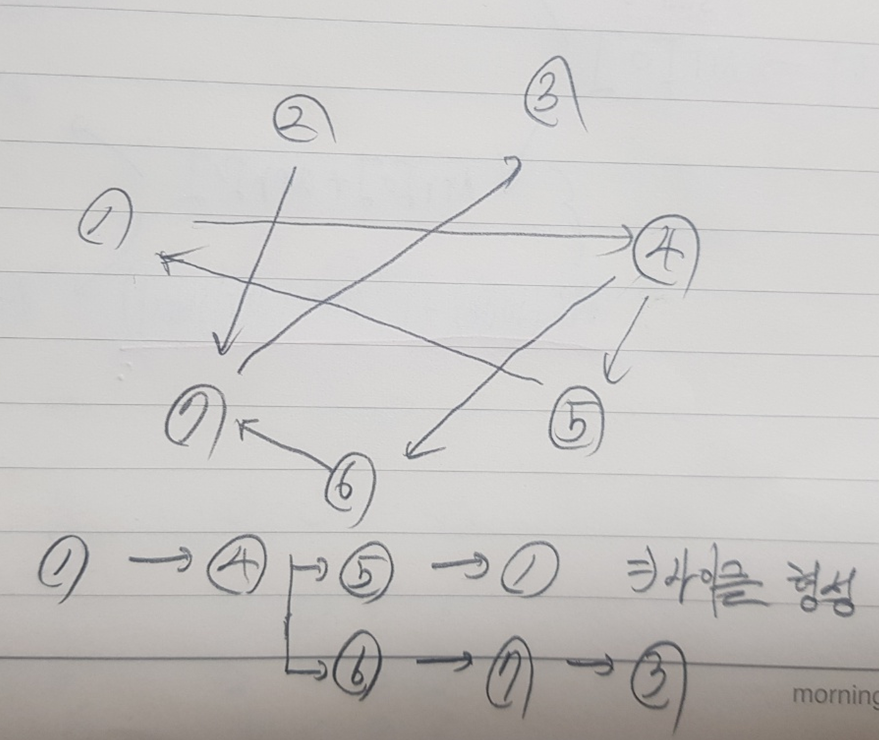 ③
②
①
④
⑦
⑤
⑥
① → ④ → ⑤ → ① ⇒ 사이클 형성
→ ⑥ → ⑦ → ③
morning